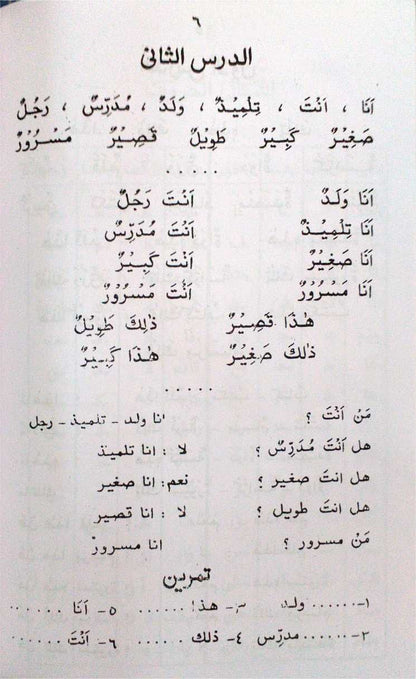 ٦
الدرس الثانى
اَنَا ، اَنْتَ ، تِلْمِيْذٌ ، وَلَدٌ ، مُدَرِّسٌ ، رَجُلٌ
صَغِيْرٌ كَبِيْرٌ طَوِيْلٌ قَصِيْرٌ مَسْرُوْرٌ
.....
اَنَا وَلَدٌ اَنْتَ رَجُلٌ
اَنَا تِلْمِيْذٌ اَنْتَ مُدَرِّسٌ
اَنَا صَغِيْرٌ اَنْتَ كَبِيْرٌ
اَنَا مَسْرُوْرٌ اَنْتَ مَسْرُوْرٌ
هٰذَا قَصِيْرٌ ذٰلِكَ طَوِيْلٌ
ذٰلِكَ صَغِيْرٌ هٰذَا كَبِيْرٌ
.....
مَنْ اَنْتَ ؟ انا ولد - تلميذ - رجل
هل اَنْتَ مُدَرِّسٌ ؟ لا : انا تلميذ
هل انتَ صغير ؟ نعم : انا صغير
هل انت طويل ؟ لا : انا قصير
مَنْ مسرور ؟ انا مسرور
تمرين
١- ...... ولد ٣- هذا ...... ٥- اَنَا ......
٣- ...... مدرّس ٤- ذلك ...... ٦- اَنْتَ ......